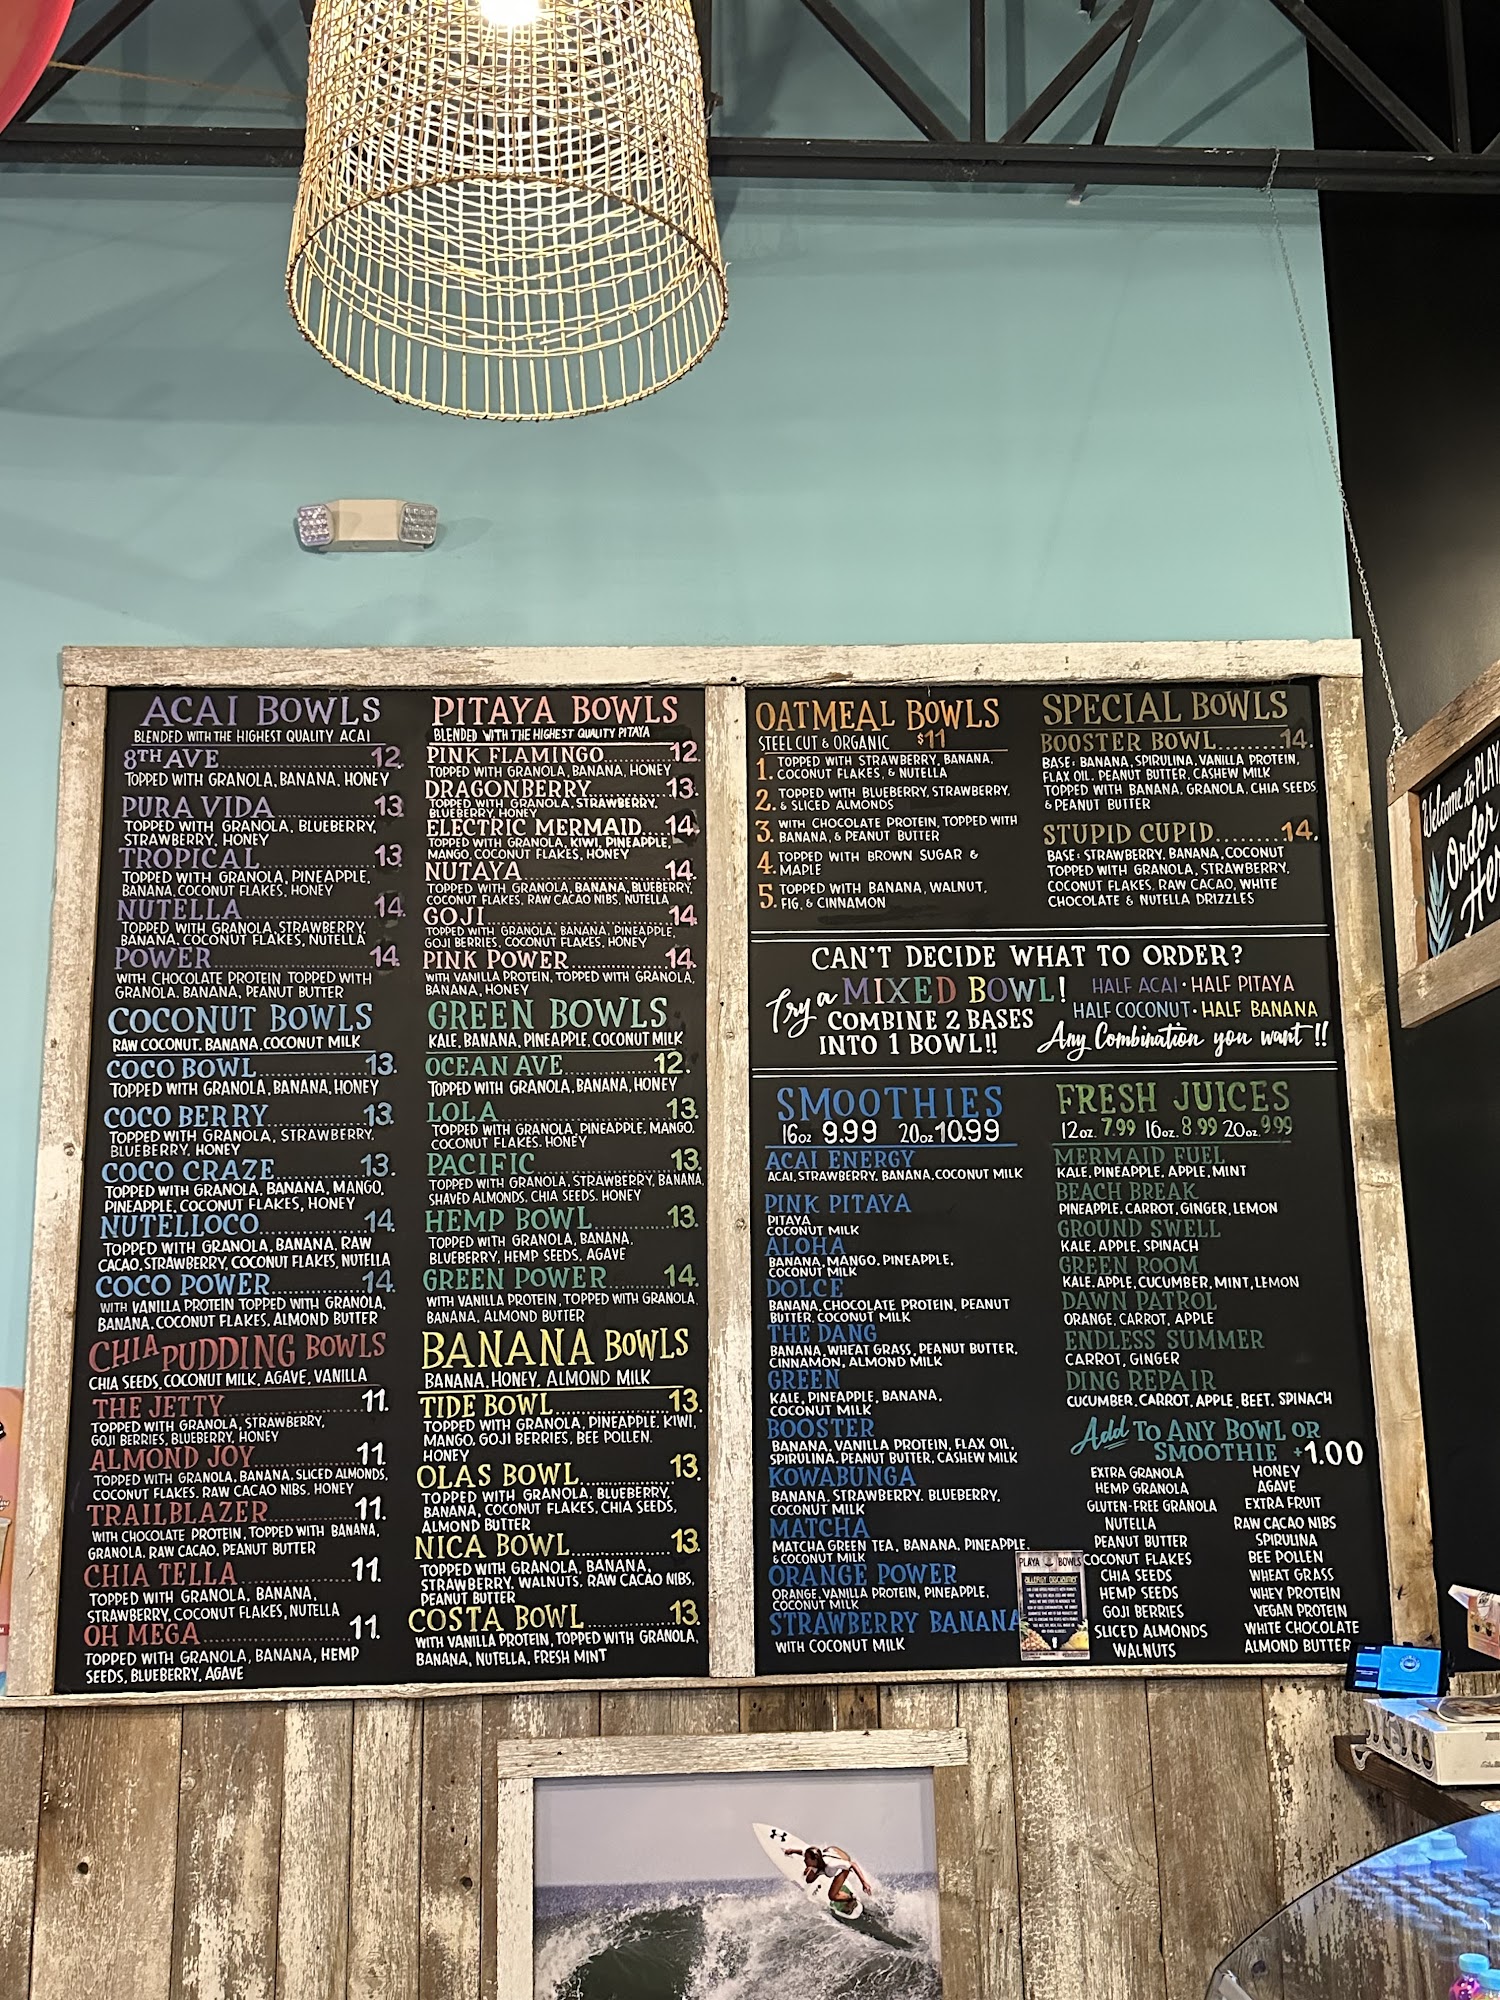 ACAI BOWLS
BLENDED WITH THE HIGHEST QUALITY ACAI
8TH AVE 12.
TOPPED WITH GRANOLA, BANANA, HONEY
PURA VIDA 13
TOPPED WITH GRANOLA, BLUEBERRY,
STRAWBERRY, HONEY
TROPICAL 13
TOPPED WITH GRANOLA, PINEAPPLE,
BANANA, COCONUT FLAKES, HONEY
NUTELLA 14
TOPPED WITH GRANOLA, STRAWBERRY,
BANANA, COCONUT FLAKES, NUTELLA
POWER 14
WITH CHOCOLATE PROTEIN TOPPED WITH
GRANOLA, BANANA, PEANUT BUTTER
COCONUT BOWLS
RAW COCONUT, BANANA, COCONUT MILK
COCO BOWL 13.
TOPPED WITH GRANOLA, BANANA, HONEY
COCO BERRY 13.
TOPPED WITH GRANOLA, STRAWBERRY,
BLUEBERRY, HONEY
COCO CRAZE 13.
TOPPED WITH GRANOLA, BANANA, MANGO,
PINEAPPLE, COCONUT FLAKES, HONEY
NUTELLOCO 14.
TOPPED WITH GRANOLA, BANANA, RAW
CACAO, STRAWBERRY, COCONUT FLAKES, NUTELLA
COCO POWER 14.
WITH VANILLA PROTEIN TOPPED WITH GRANOLA,
BANANA, COCONUT FLAKES, ALMOND BUTTER
CHIA PUDDING BOWLS
CHIA SEEDS, COCONUT MILK, AGAVE, VANILLA
THE JETTY 11.
TOPPED WITH GRANOLA, STRAWBERRY,
GOJI BERRIES, BLUEBERRY, HONEY
ALMOND JOY 11.
TOPPED WITH GRANOLA, BANANA, SLICED ALMONDS,
COCONUT FLAKES, RAW CACAO NIBS, HONEY
TRAILBLAZER 11.
WITH CHOCOLATE PROTEIN, TOPPED WITH BANANA,
GRANOLA, RAW CACAO, PEANUT BUTTER
CHIA TELLA 11.
TOPPED WITH GRANOLA, BANANA,
STRAWBERRY, COCONUT FLAKES, NUTELLA
OH MEGA 11.
TOPPED WITH GRANOLA, BANANA, HEMP
SEEDS, BLUEBERRY, AGAVE
PITAYA BOWLS
BLENDED WITH THE HIGHEST QUALITY PITAYA
PINK FLAMINGO 12
TOPPED WITH GRANOLA, BANANA, HONEY
DRAGONBERRY 13.
TOPPED WITH GRANOLA, STRAWBERRY,
BLUEBERRY, HONEY
ELECTRIC MERMAID 14.
TOPPED WITH GRANOLA, KIWI, PINEAPPLE,
MANGO, COCONUT FLAKES, HONEY
NUTAYA 14
TOPPED WITH GRANOLA, BANANA, BLUEBERRY,
COCONUT FLAKES, RAW CACAO NIBS, NUTELLA
GOJI 14
TOPPED WITH GRANOLA, BANANA, PINEAPPLE,
GOJI BERRIES, COCONUT FLAKES, HONEY
PINK POWER 14.
WITH VANILLA PROTEIN, TOPPED WITH GRANOLA,
BANANA, HONEY
GREEN BOWLS
KALE, BANANA, PINEAPPLE, COCONUT MILK
OCEAN AVE 12.
TOPPED WITH GRANOLA, BANANA, HONEY
LOLA 13.
TOPPED WITH GRANOLA, PINEAPPLE, MANGO,
COCONUT FLAKES, HONEY
PACIFIC 13.
TOPPED WITH GRANOLA, STRAWBERRY, BANANA,
SHAVED ALMONDS, CHIA SEEDS, HONEY
HEMP BOWL 13.
TOPPED WITH GRANOLA, BANANA,
BLUEBERRY, HEMP SEEDS, AGAVE
GREEN POWER 14.
WITH VANILLA PROTEIN, TOPPED WITH GRANOLA,
BANANA, ALMOND BUTTER
BANANA BOWLS
BANANA, HONEY, ALMOND MILK
TIDE BOWL 13.
TOPPED WITH GRANOLA, PINEAPPLE, KIWI,
MANGO, GOJI BERRIES, BEE POLLEN,
HONEY
OLAS BOWL 13.
TOPPED WITH GRANOLA, BLUEBERRY,
BANANA, COCONUT FLAKES, CHIA SEEDS,
ALMOND BUTTER
NICA BOWL 13.
TOPPED WITH GRANOLA, BANANA,
STRAWBERRY, WALNUTS, RAW CACAO NIBS,
PEANUT BUTTER
COSTA BOWL 13.
WITH VANILLA PROTEIN, TOPPED WITH GRANOLA,
BANANA, NUTELLA, FRESH MINT
OATMEAL BOWLS
STEEL CUT & ORGANIC $11
1. TOPPED WITH STRAWBERRY, BANANA,
COCONUT FLAKES, & NUTELLA
2. TOPPED WITH BLUEBERRY, STRAWBERRY,
& SLICED ALMONDS
3. WITH CHOCOLATE PROTEIN, TOPPED WITH
BANANA, & PEANUT BUTTER
4. TOPPED WITH BROWN SUGAR &
MAPLE
5. TOPPED WITH BANANA, WALNUT,
FIG, & CINNAMON
SPECIAL BOWLS
BOOSTER BOWL 14.
BASE: BANANA, SPIRULINA, VANILLA PROTEIN,
FLAX OIL, PEANUT BUTTER, CASHEW MILK
TOPPED WITH BANANA, GRANOLA, CHIA SEEDS
& PEANUT BUTTER
STUPID CUPID 14.
BASE: STRAWBERRY, BANANA, COCONUT
TOPPED WITH GRANOLA, STRAWBERRY,
COCONUT FLAKES, RAW CACAO, WHITE
CHOCOLATE & NUTELLA DRIZZLES
CAN'T DECIDE WHAT TO ORDER?
Try a MIXED BOWL!
COMBINE 2 BASES
INTO 1 BOWL!!
HALF ACAI · HALF PITAYA
HALF COCONUT · HALF BANANA
Any Combination you want!!
SMOOTHIES
16oz 9.99 20oz 10.99
ACAI ENERGY
ACAI, STRAWBERRY, BANANA, COCONUT MILK
PINK PITAYA
PITAYA
COCONUT MILK
ALOHA
BANANA, MANGO, PINEAPPLE,
COCONUT MILK
DOLCE
BANANA, CHOCOLATE PROTEIN, PEANUT
BUTTER, COCONUT MILK
THE DANG
BANANA, WHEAT GRASS, PEANUT BUTTER,
CINNAMON, ALMOND MILK
GREEN
KALE, PINEAPPLE, BANANA,
COCONUT MILK
BOOSTER
BANANA, VANILLA PROTEIN, FLAX OIL,
SPIRULINA, PEANUT BUTTER, CASHEW MILK
KOWABUNGA
BANANA, STRAWBERRY, BLUEBERRY,
COCONUT MILK
MATCHA
MATCHA GREEN TEA, BANANA, PINEAPPLE,
& COCONUT MILK
ORANGE POWER
ORANGE, VANILLA PROTEIN, PINEAPPLE,
COCONUT MILK
STRAWBERRY BANANA
WITH COCONUT MILK
FRESH JUICES
12oz. 7.99 16oz. 8.99 20oz. 9.99
MERMAID FUEL
KALE, PINEAPPLE, APPLE, MINT
BEACH BREAK
PINEAPPLE, CARROT, GINGER, LEMON
GROUND SWELL
KALE, APPLE, SPINACH
GREEN ROOM
KALE, APPLE, CUCUMBER, MINT, LEMON
DAWN PATROL
ORANGE, CARROT, APPLE
ENDLESS SUMMER
CARROT, GINGER
DING REPAIR
CUCUMBER, CARROT, APPLE, BEET, SPINACH
Add TO ANY BOWL OR
SMOOTHIE +1.00
EXTRA GRANOLA
HEMP GRANOLA
GLUTEN-FREE GRANOLA
NUTELLA
PEANUT BUTTER
COCONUT FLAKES
CHIA SEEDS
HEMP SEEDS
GOJI BERRIES
SLICED ALMONDS
WALNUTS
HONEY
AGAVE
EXTRA FRUIT
RAW CACAO NIBS
SPIRULINA
BEE POLLEN
WHEAT GRASS
WHEY PROTEIN
VEGAN PROTEIN
WHITE CHOCOLATE
ALMOND BUTTER
PLAYA BOWLS
ALLERGY DISCLAIMER
Welcome to PLAYA
Order
Here